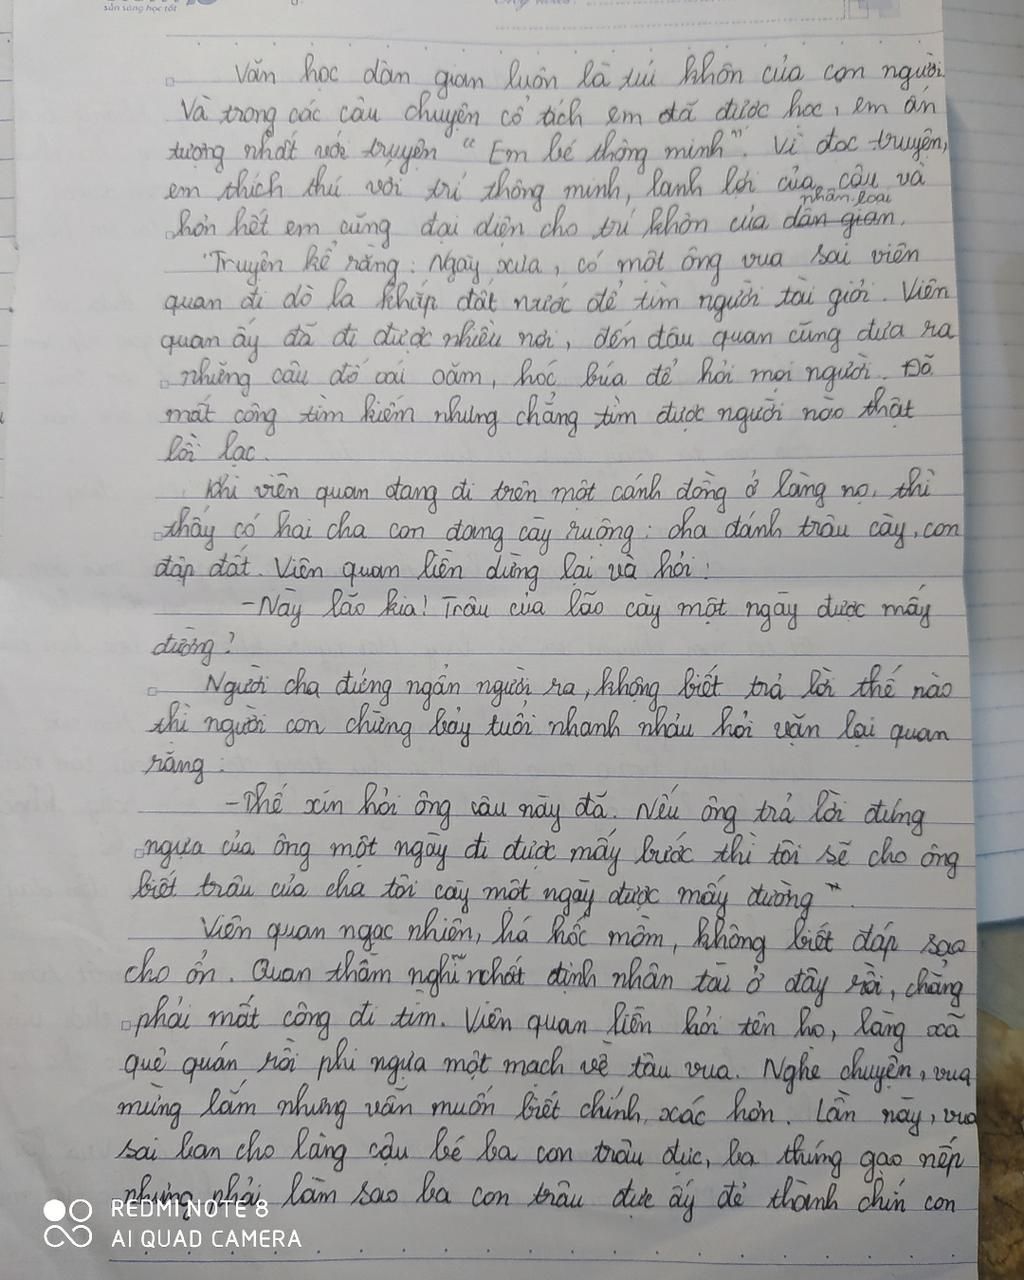 sẵn sàng học tốt
Văn học dân gian luôn là túi khôn của con người.
Và trong các câu chuyện cổ tích em đã được học, em ấn
tượng nhất với truyện " Em bé thông minh". Vì đọc truyện,
em thích thú với trí thông minh, lanh lợi của cậu và
nhân loại
hơn hết em cũng đại diện cho trí khôn của dân gian.
Truyện kể rằng: Ngày xưa, có một ông vua sai viên
quan đi dò la khắp đất nước để tìm người tài giỏi. Viên
quan ấy đã đi được nhiều nơi, đến đâu quan cũng đưa ra
những câu đố oái oăm, hóc búa để hỏi mọi người. Đã
mất công tìm kiếm nhưng chẳng tìm được người nào thật
lỗi lạc.
Khi viên quan đang đi trên một cánh đồng ở làng nọ, thì
thấy có hai cha con đang cày ruộng: cha đánh trâu cày, con
đập đất. Viên quan liền dừng lại và hỏi:
- Này lão kia! Trâu của lão cày một ngày được mấy
đường?
Người cha đứng ngẩn người ra, không biết trả lời thế nào
thì người con chừng bảy tuổi nhanh nhảu hỏi vặn lại quan
rằng:
- Thế xin hỏi ông câu này đã. Nếu ông trả lời đúng
ngựa của ông một ngày đi được mấy bước thì tôi sẽ cho ông
biết trâu của cha tôi cày một ngày được mấy đường".
Viên quan ngạc nhiên, há hốc mồm, không biết đáp sao
cho ổn. Quan thầm nghĩ nhất định nhân tài ở đây rồi, chẳng
phải mất công đi tìm. Viên quan liền hỏi tên họ, làng xã
quê quán rồi phi ngựa một mạch về tâu vua. Nghe chuyện, vua
mừng lắm nhưng vẫn muốn biết chính xác hơn. Lần này, vua
sai ban cho làng cậu bé ba con trâu đực, ba thúng gạo nếp
nhưng phải làm sao ba con trâu đực ấy đẻ thành chín con
REDMI NOTE 8
AI QUAD CAMERA